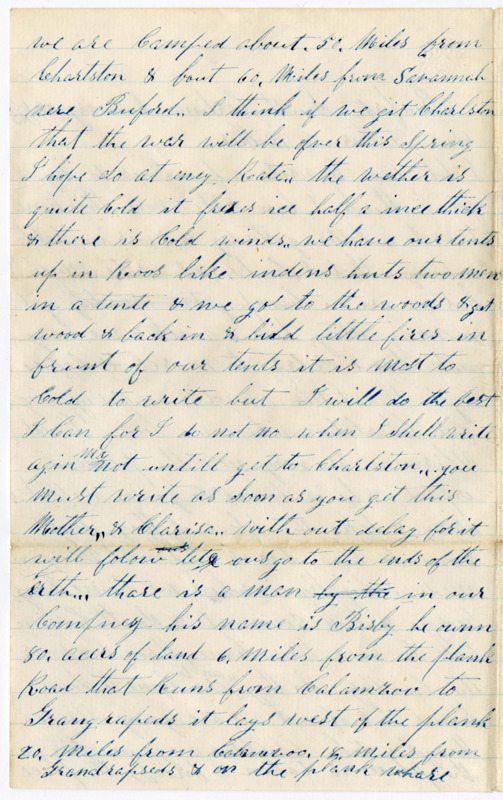 we are Camped about. 50. Miles from
Charlston & bout 60, Miles from Savannah
nere Buford. I think if we git Charlston
that the war will be over this Spring
I hope so at eney Rate,, the wether is
quite Cold it frezes ice half a inee thick
& there is Cold winds,, we have our tents
up in Roos like indens huts two men
in a tente & we go to the woods & get
wood & back in & bild little fires in
frunt of our tents it is Most to
Cold to write but I will do the best
I Can for I do not no when I Shell write
agin not untill get to Charlston,, you
Must write as Soon as you get this
Mother,, & Clarisa,, with out delay for it
will folow let ous go to the ends of the
erth,,, thare is a man by the in our
Compney his name is Bisby he ownn
80. acers of land 6. Miles from the plank
Road that Runs from Calamzoo to
Grangrapeds it lays west of the plank
20. Miles from 18. Miles from
Grandrapseds & on the plank whare